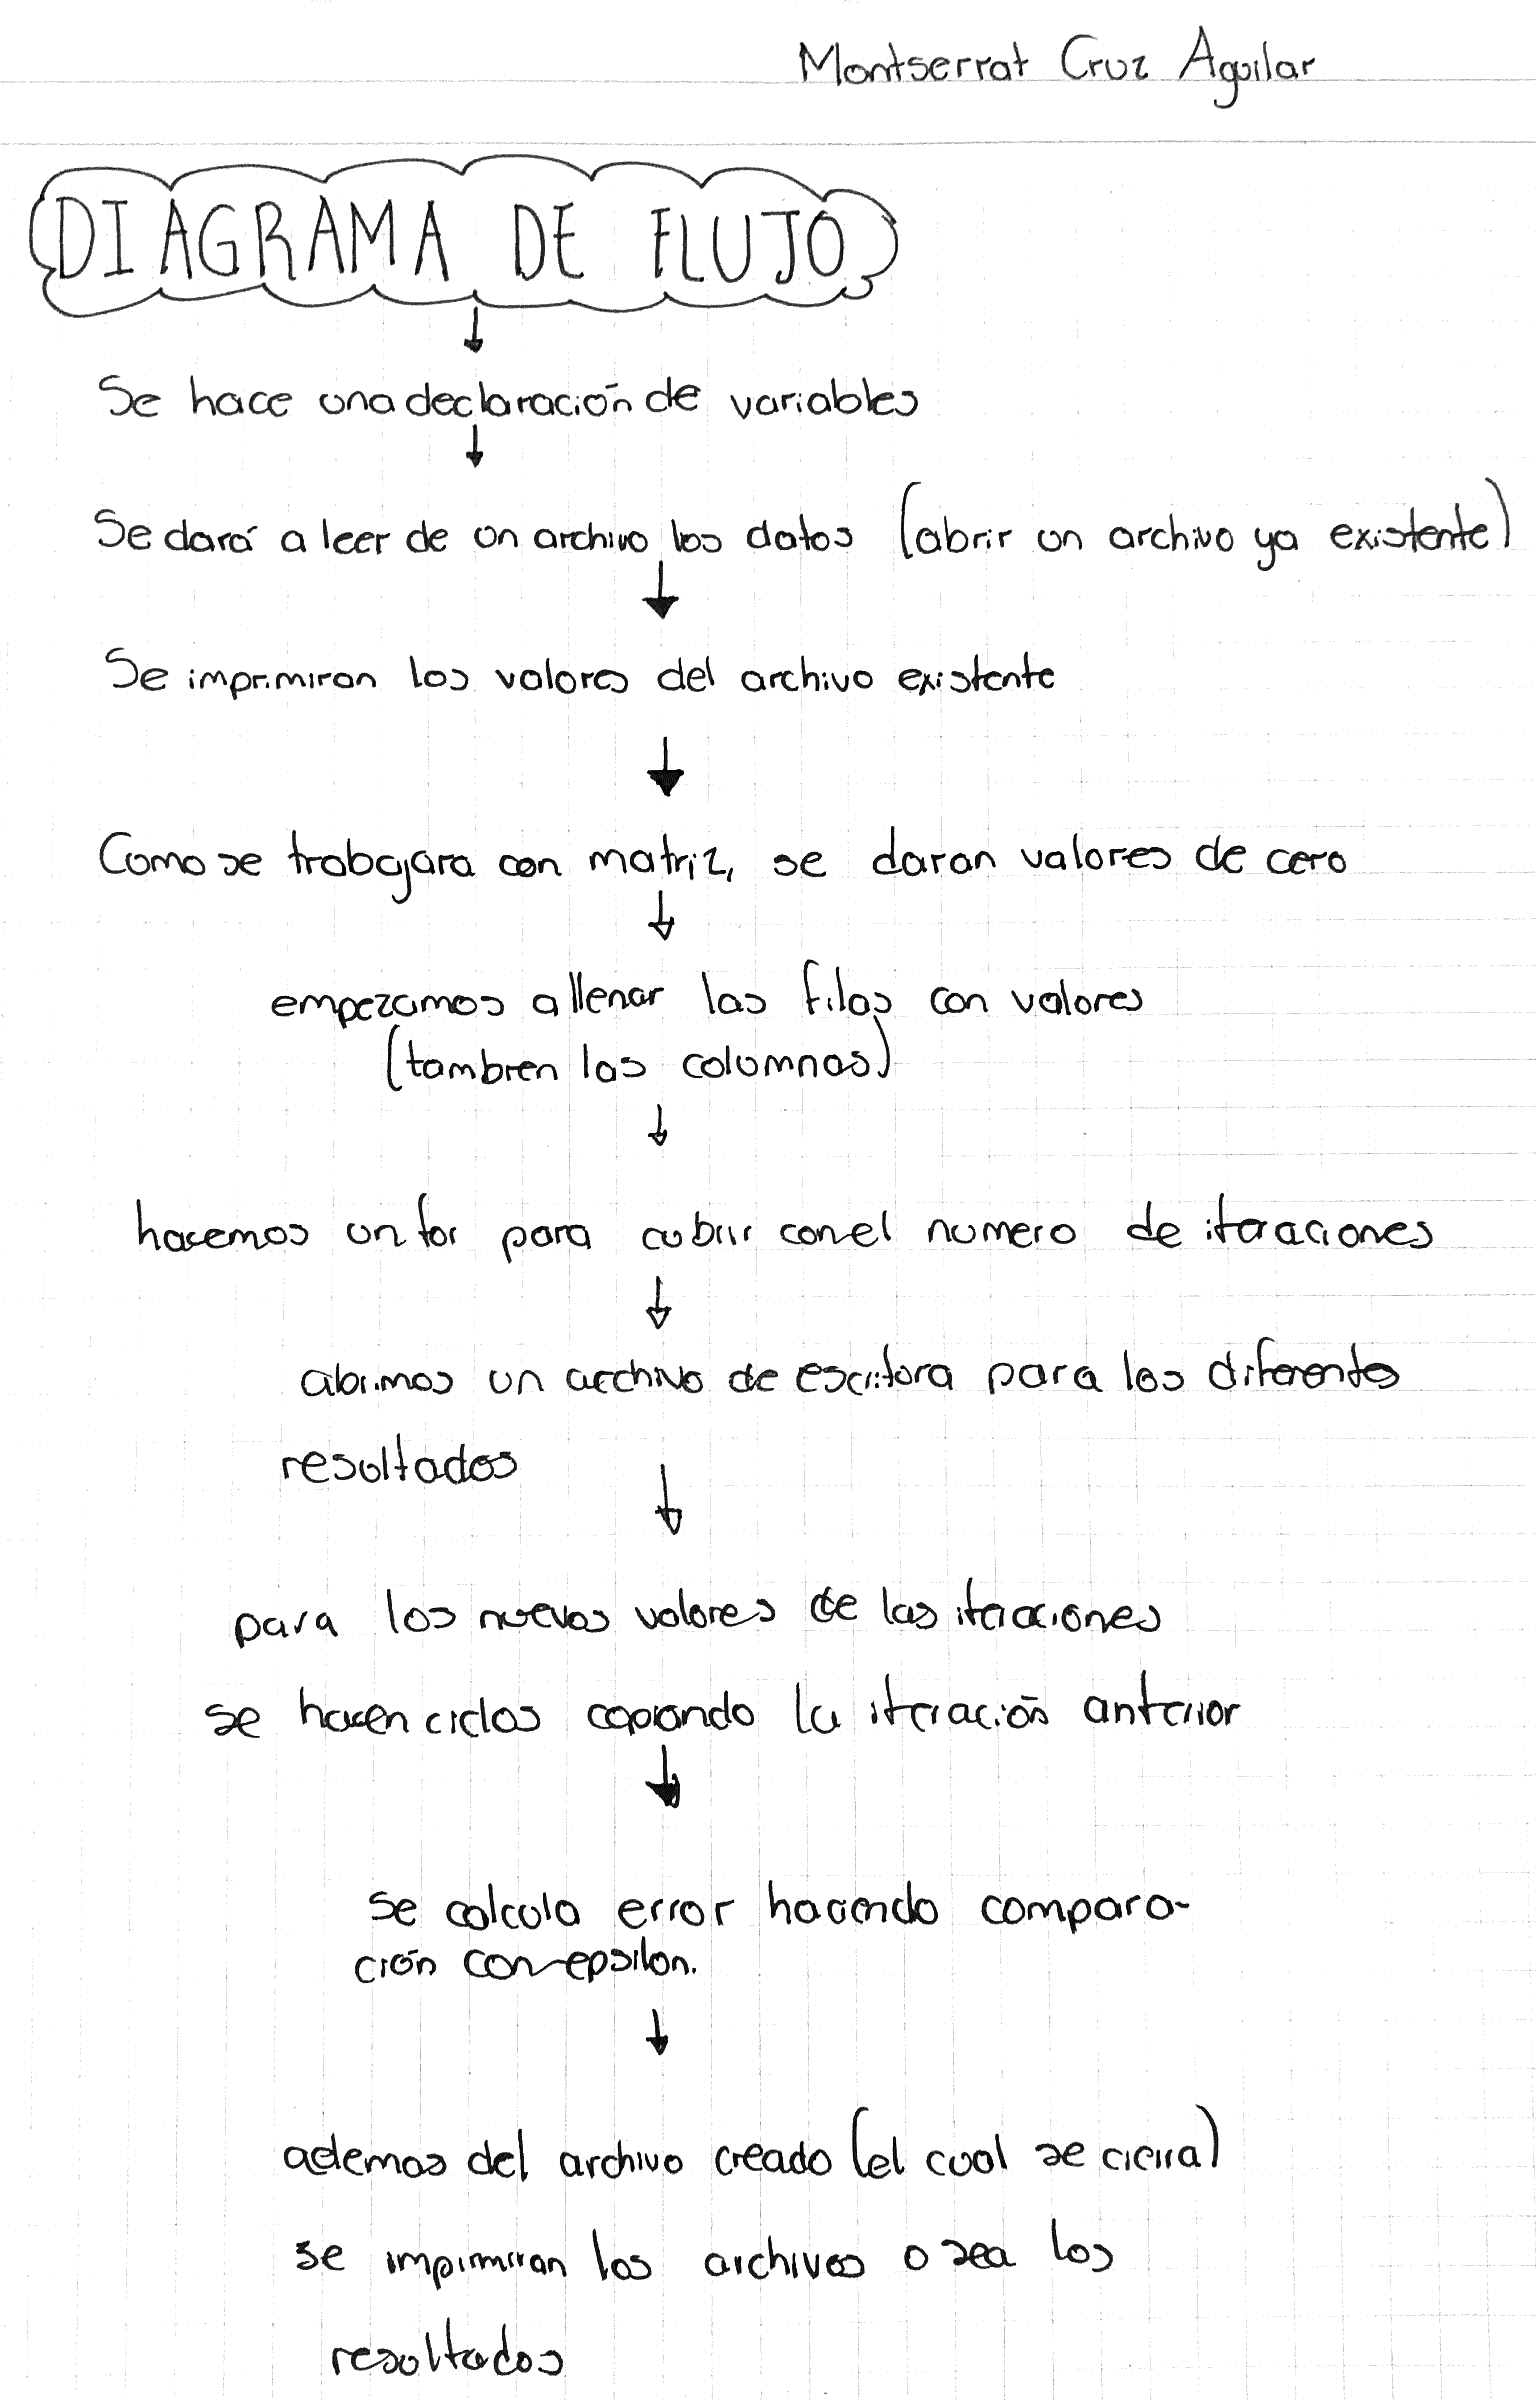 Montserrat Cruz Aguilar
DIAGRAMA DE FLUJO
Se hace una declaración de variables
Se dará a leer de un archivo los datos (abrir un archivo ya existente)
Se imprimiran los valores del archivo existente
Como se trabajara con matriz, se daran valores de cero
empezamos a llenar las filas con valores
(tambien las columnas)
hacemos un for para cubrir con el numero de iteraciones
abrimos un archivo de escritura para los diferentes
resultados
para los nuevos valores de las iteraciones
se hacen ciclos copiando la iteración anterior
se calcula error haciendo compara-
ción con epsilon.
ademas del archivo creado (el cual se cierra)
se imprimiran los archivos o sea los
resultados